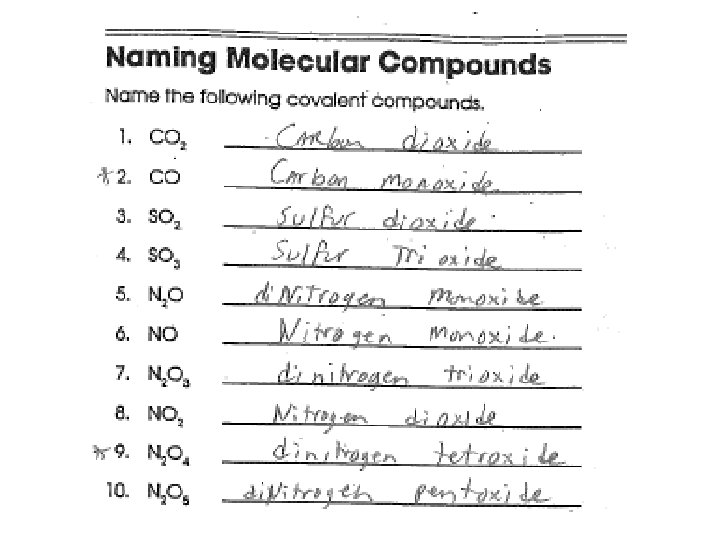 Naming Molecular Compounds
Name the following covalent compounds.
1. CO₂ Carbon dioxide
*2. CO Carbon monoxide
3. SO₂ Sulfur dioxide
4. SO₃ Sulfur Trioxide
5. N₂O diNiTrogen monoxide
6. NO Nitrogen monoxide.
7. N₂O₃ dinitrogen trioxide
8. NO₂ Nitrogen dioxide
*9. N₂O₄ dinitrogen tetroxide
10. N₂O₅ diNitrogen pentoxide